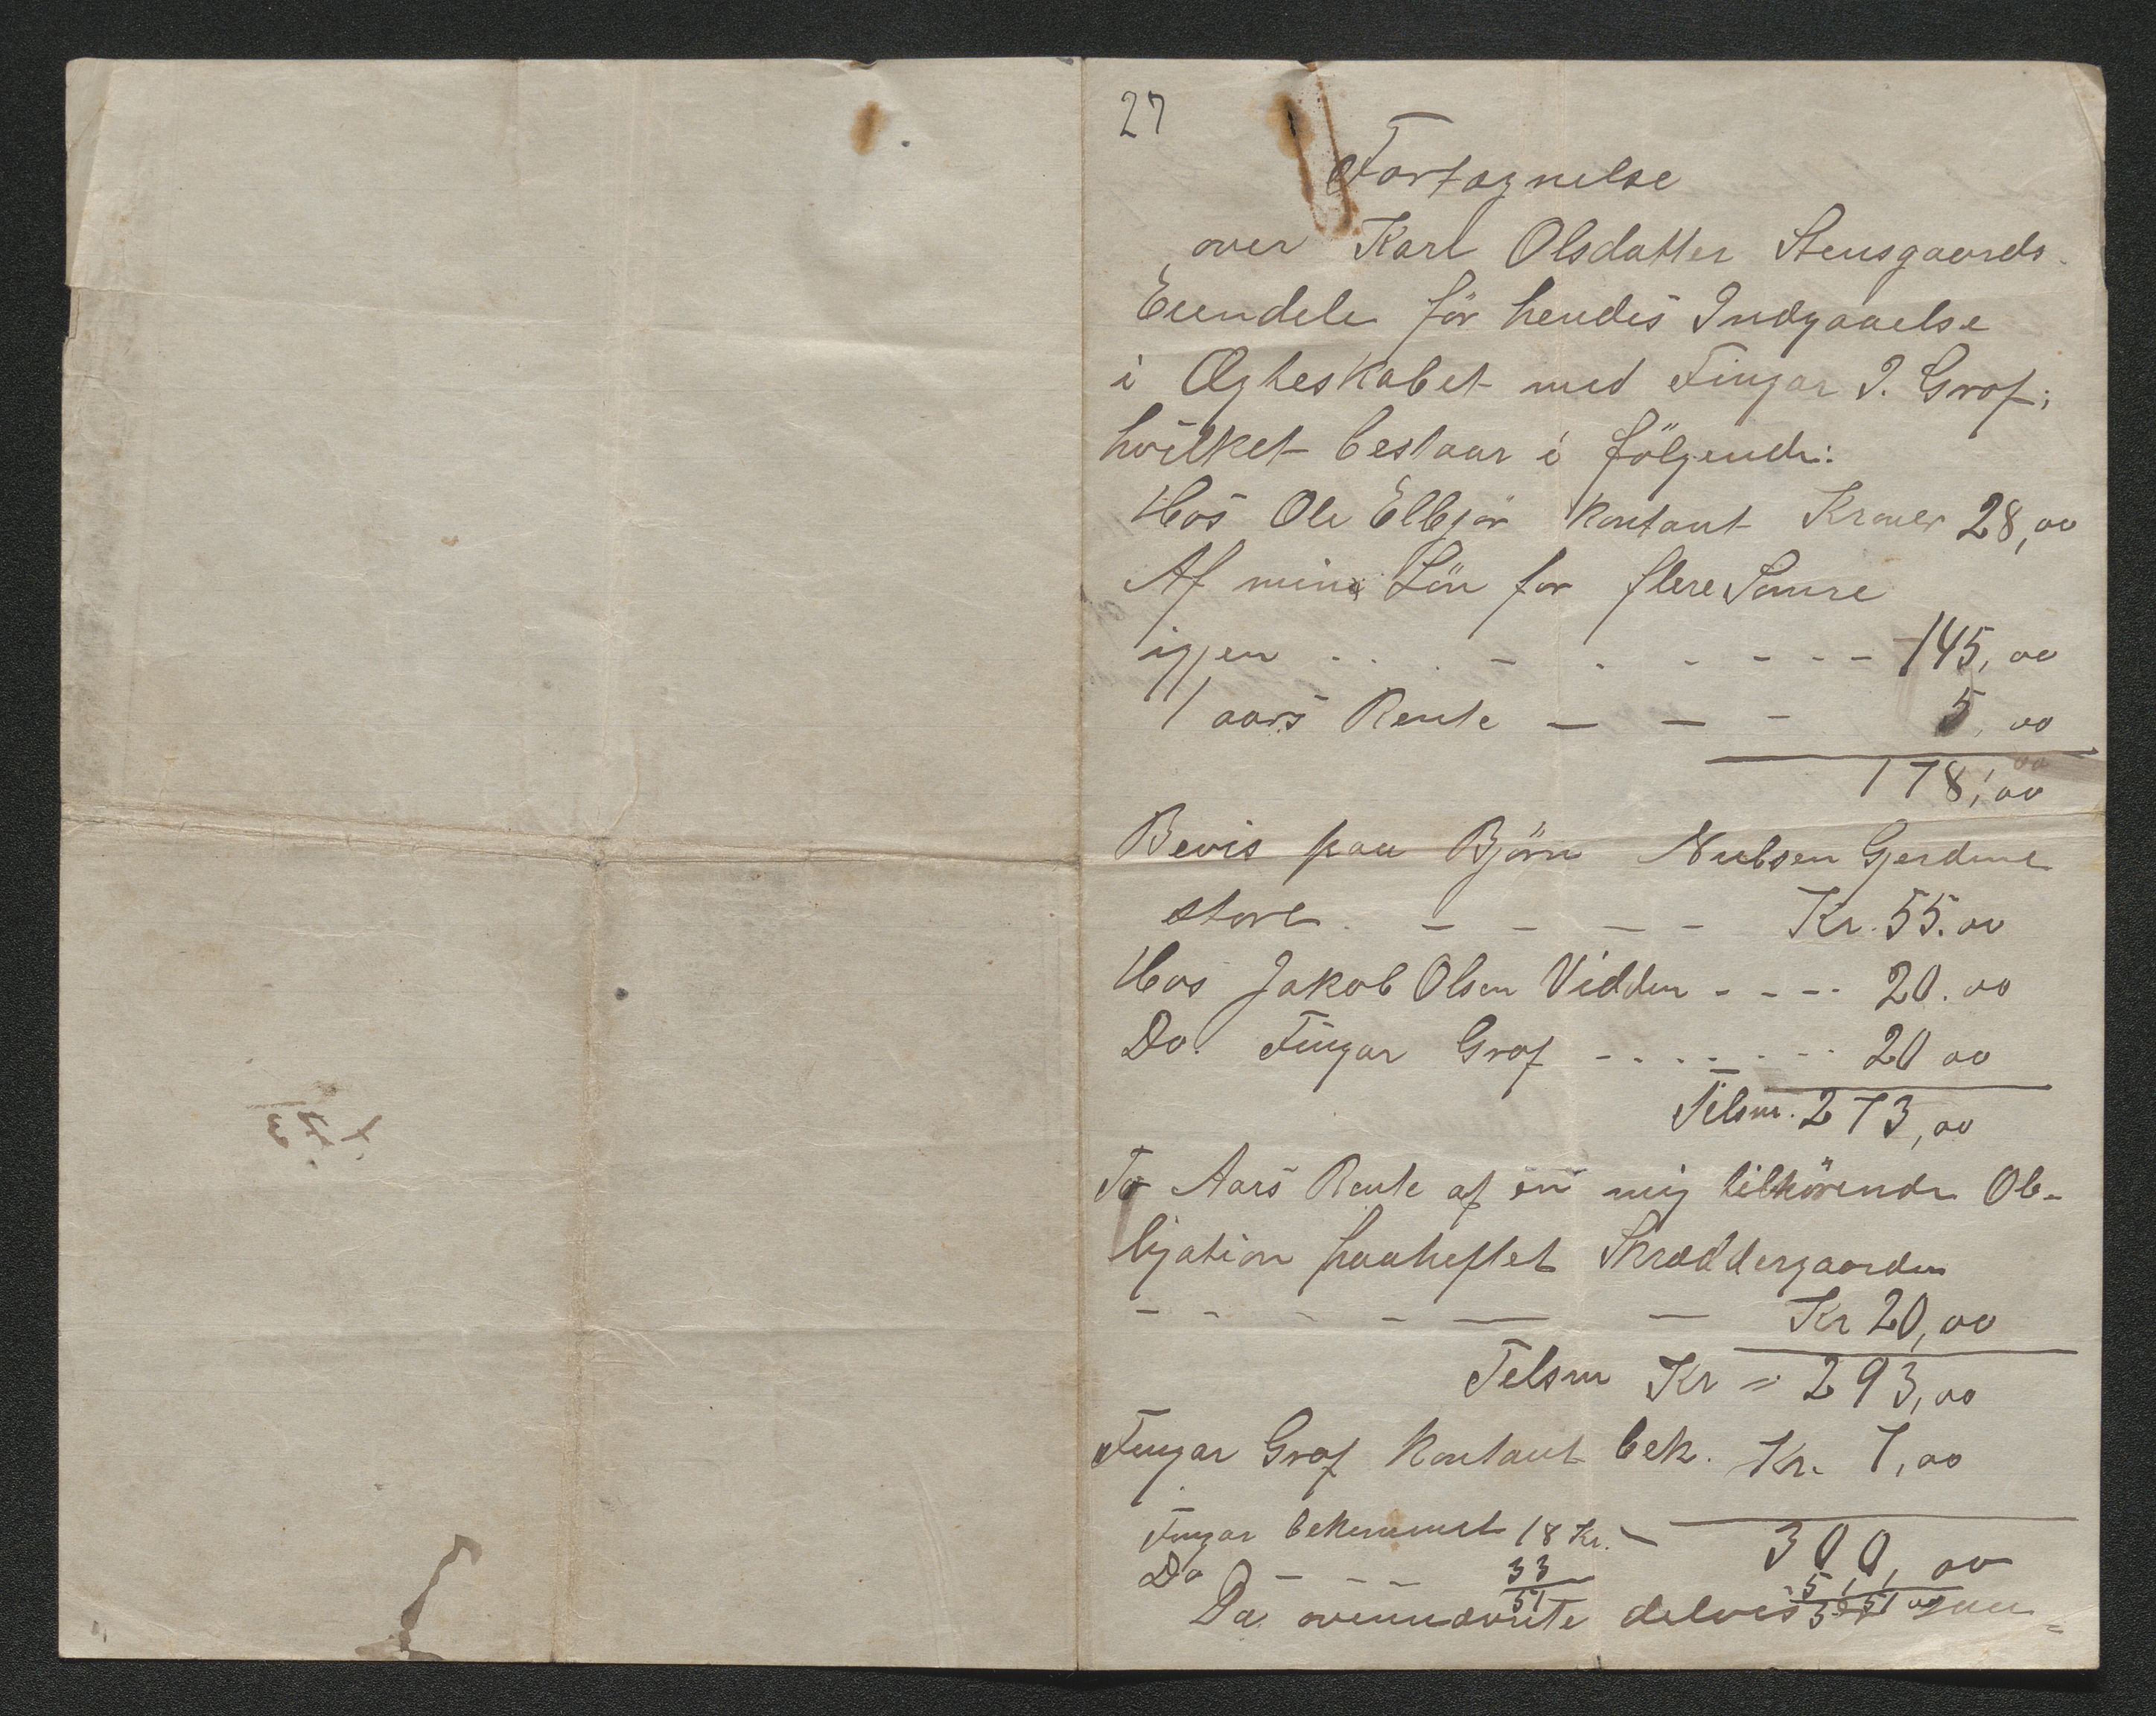 27
Fortegnelse
over Kari Olsdatter Stensgaards
Eiendele för hendes Indgaaelse
i Ægteskabet med Fingar I. Grøf;
hvilket bestaar i følgende:
Hos Ole Elbjør Kontant Kroner 28,00
Af mine Lön for flere Somre
igjen - - - 145,00
1 aars Rente - - - 5,00
178,00
Bevis paa Björn Nielsen Gjerdene
store - - - Kr. 55.00
Hos Jakob Olsen Vidden - - - 20.00
Do. Fingar Grøf - - - 20 00
Tilsm. 273,00
To Aars Rente af en mig tilhörende Ob-
ligation paaheftet Skræddergaarden
- - - Kr 20,00
Tilsm Kr = 293,00
Fingar Grøf Kontant bek. Kr. 7,00
Fingar bekommet 18 Kr. - 300,00
Do - - - 33
51
51
351 00
Da ovennævnte delvis